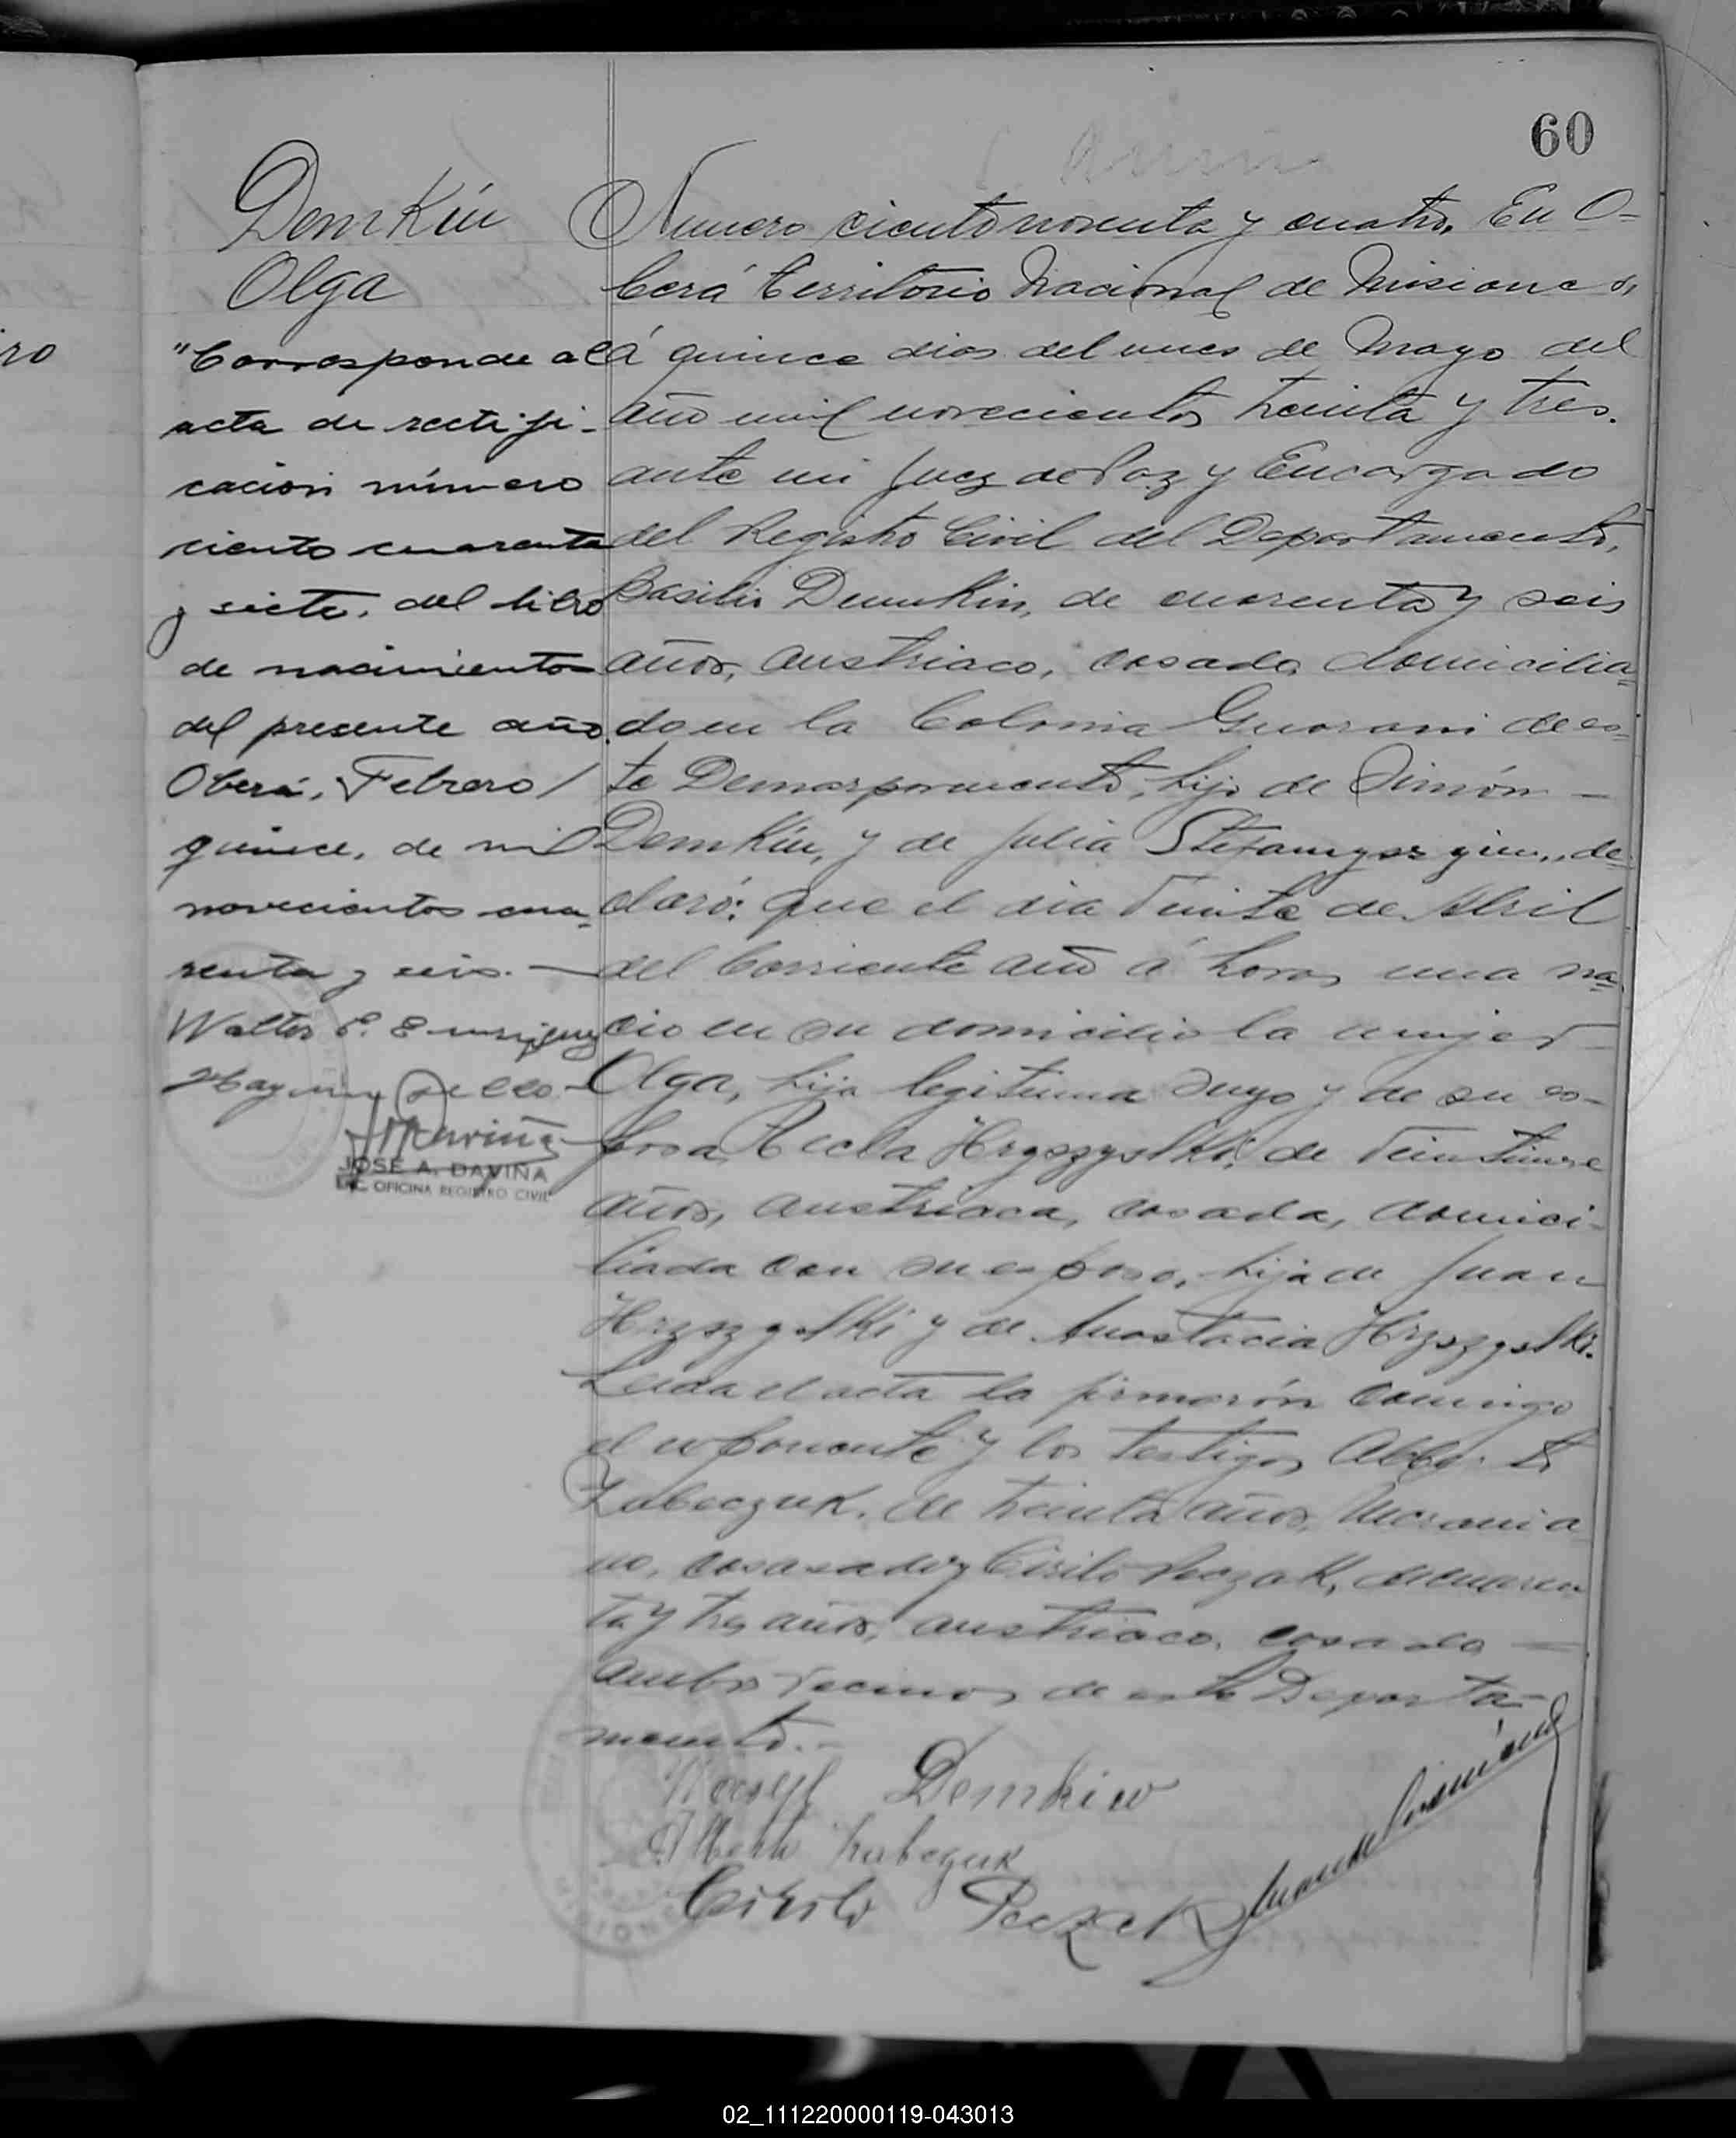 60
Demkiu
Olga
"Corresponde al
acta de rectifi-
cación número
ciento cuarenta
y siete, del libro
de nacimientos
del presente año.
Oberá, Febrero /
quince, de mil
novecientos cua-
renta y seis. —
Walter E.
Hay un sello
JOSÉ A. DAVIÑA
ENC. OFICINA REGISTRO CIVIL
Numero ciento noventa y cuatro. En O-
berá Territorio Nacional de Misiones,
á quince dias del mes de Mayo del
año mil novecientos treinta y tres.
ante mi Juez de Paz y Encargado
del Registro Civil del Departamento,
Basilio Demkiu, de cuarenta y seis
años, austriaco, casado, domicilia-
do en la Colonia Guarani de es-
te Demarpormento, hijo de Simón —
Demkiu, y de Julia declaró: que el dia veinte de Abril
del corriente año á horas una na-
cio en su domicilio la mujer —
Olga, hija legitima suya y de su es-
posa Tecla Hryszyslki, de
años, austriaca, casada, domici-
liada con su esposo, hija de Juan
Hrzszyslki y de Anastacia Hrzszyslki.
Leida el acta la firmarón conmigo
el exponente y los testigos
Zubeczuk, de treinta años, Ucrania
no, casasado y Cirilo Peczak, de cuaren
ta y tres años, austriaco, casado —
ambos vecinos de este Departa-
mento.-
Wasyl Demkiw
Cirilo Peczak
02_111220000119-043013